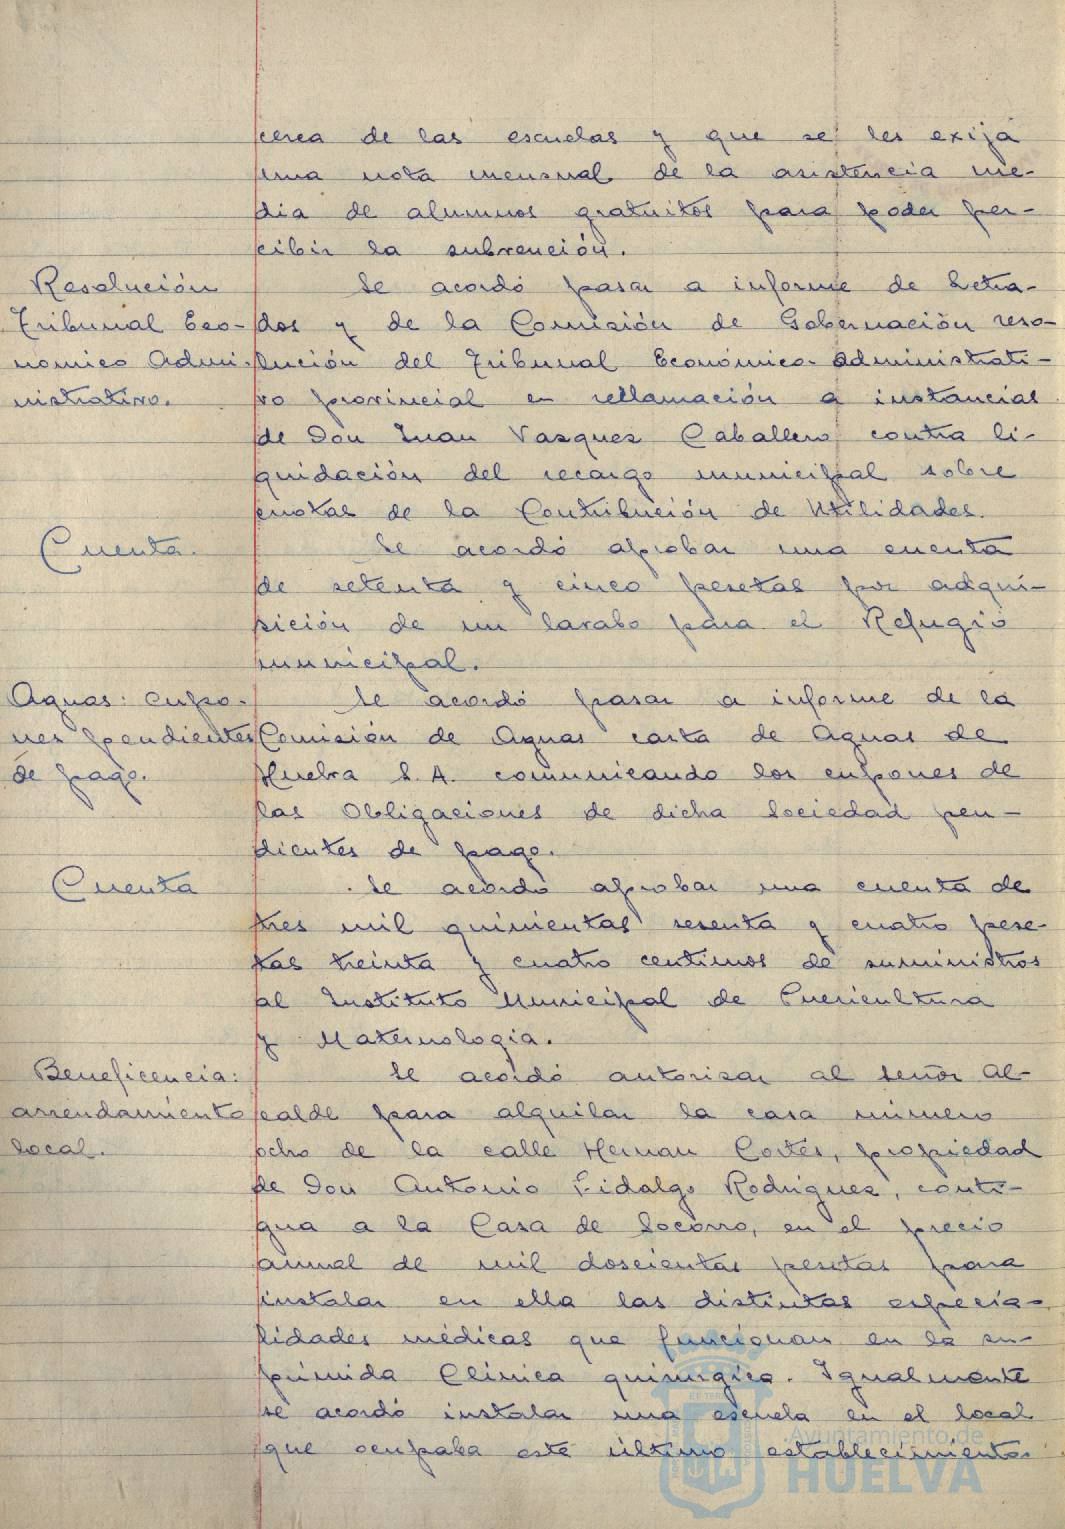 cerca de las escuelas y que se les exija
una nota mensual de la asistencia me-
dia de alumnos gratuitos para poder per-
cibir la subvención.
Resolución
Tribunal Eco-
nomico Admi-
nistrativo.
Se acordó pasar a informe de Letra-
dos y de la Comisión de Gobernación reso-
lución del Tribunal Económico-administrati-
vo provincial en reclamación a instancias
de Don Juan Vasquez Caballero contra li-
quidación del recargo municipal sobre
cuotas de la Contribución de Utilidades.
Cuenta.
Se acordó aprobar una cuenta
de setenta y cinco pesetas por adqui-
sición de un lavabo para el Refugio
municipal.
Aguas: cupo-
nes pendientes
de pago.
Se acordó pasar a informe de la
Comisión de Aguas carta de Aguas de
Huelva S.A. comunicando los cupones de
las Obligaciones de dicha Sociedad pen-
dientes de pago.
Cuenta
Se acordó aprobar una cuenta de
tres mil quinientas sesenta y cuatro pese-
tas treinta y cuatro centimos de suministros
al Instituto Municipal de Puericultura
y Maternologia.
Beneficencia:
arrendamiento
local.
Se acordó autorizar al señor Al-
calde para alquilar la casa número
ocho de la calle Hernan Cortés, propiedad
de Don Antonio Fidalgo Rodriguez, conti-
gua a la Casa de Socorro, en el precio
anual de mil doscientas pesetas para
instalar en ella las distintas especia-
lidades médicas que funcionan en la su-
primida Clínica quirurgica. Igualmente
se acordó instalar una escuela en el local
que ocupaba este último establecimiento
Ayuntamiento de
HUELVA